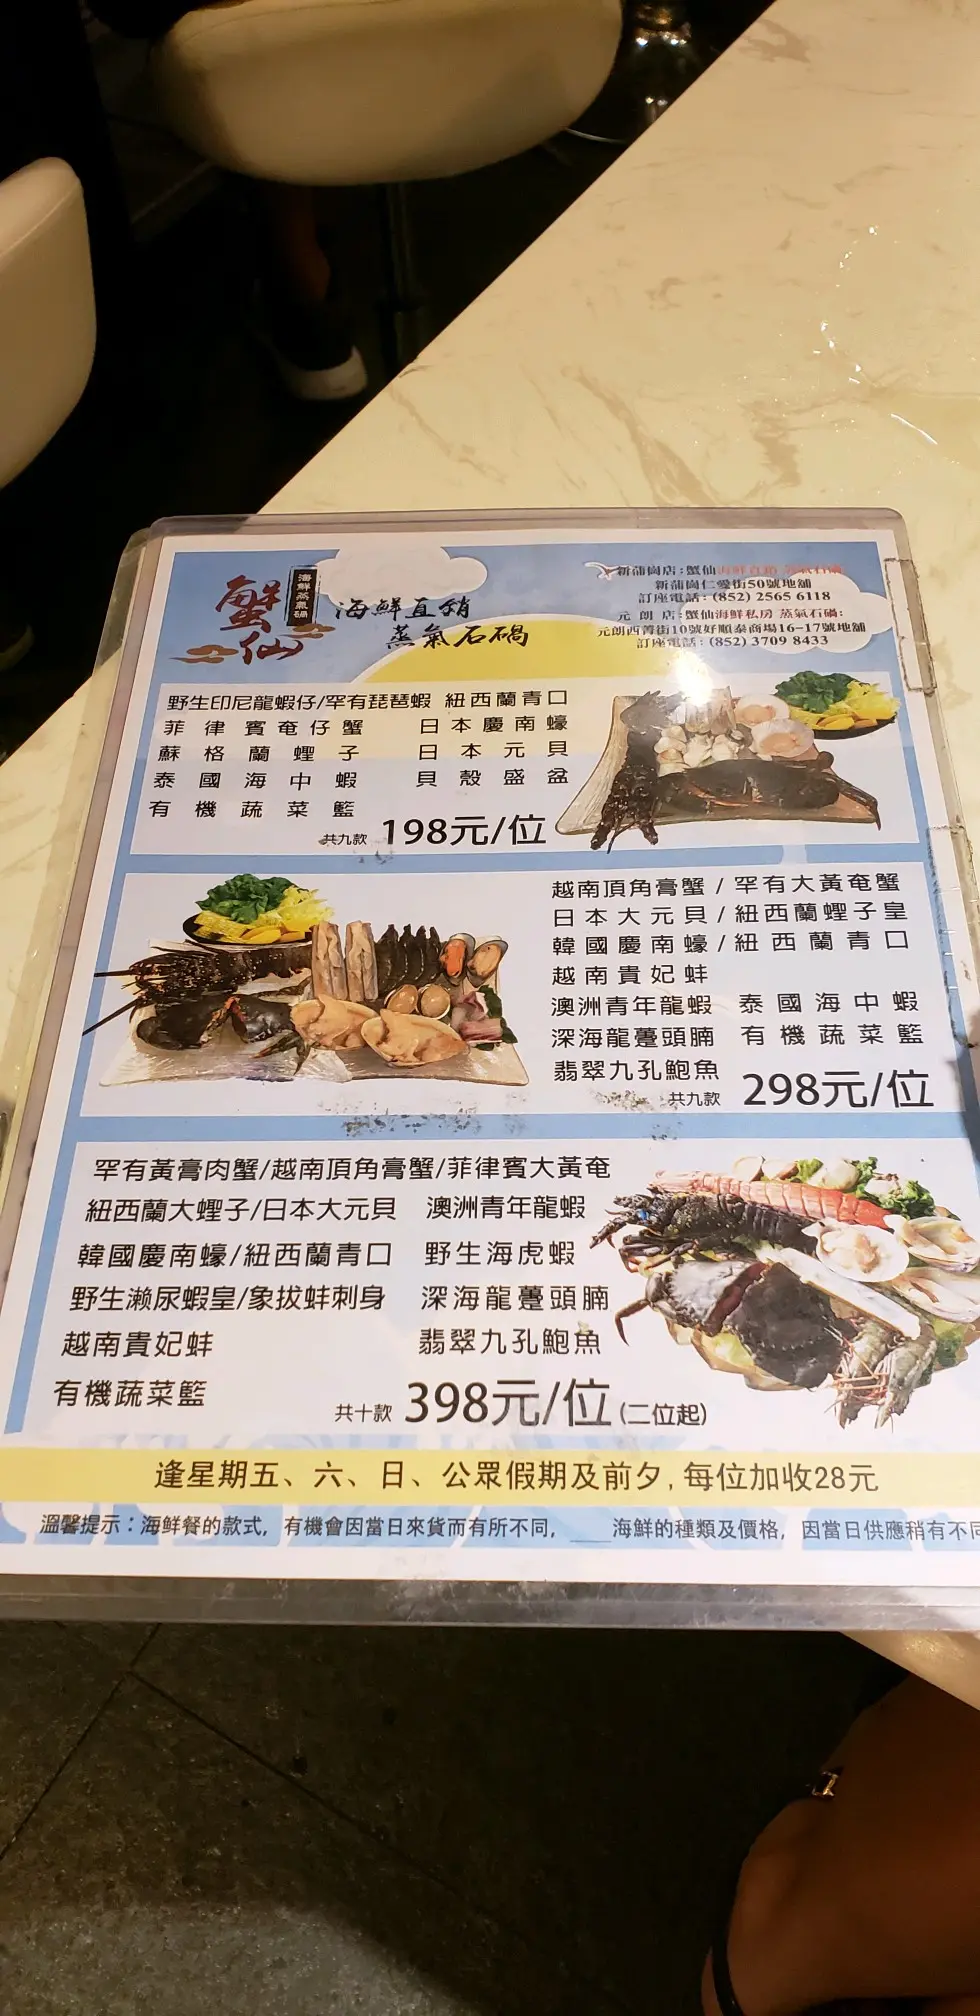 蟹仙
海鮮蒸氣鍋
海鮮直銷
蒸氣石鍋
新蒲崗店:蟹仙海鮮直銷 蒸氣石鍋:
新蒲崗仁愛街50號地舖
訂座電話:(852) 2565 6118
元朗店:蟹仙海鮮私房 蒸氣石鍋:
元朗西菁街10號好順泰商場16-17號地舖
訂座電話:(852) 3709 8433
野生印尼龍蝦仔/罕有琵琶蝦 紐西蘭青口
菲律賓奄仔蟹 日本慶南蠔
蘇格蘭蟶子 日本元貝
泰國海中蝦 貝殼盛盆
有機蔬菜籃
共九款 198元/位
越南頂角膏蟹 / 罕有大黃奄蟹
日本大元貝/紐西蘭蟶子皇
韓國慶南蠔/紐西蘭青口
越南貴妃蚌
澳洲青年龍蝦 泰國海中蝦
深海龍躉頭腩 有機蔬菜籃
翡翠九孔鮑魚
共九款 298元/位
罕有黃膏肉蟹/越南頂角膏蟹/菲律賓大黃奄
紐西蘭大蟶子/日本大元貝 澳洲青年龍蝦
韓國慶南蠔/紐西蘭青口 野生海虎蝦
野生瀨尿蝦皇/象拔蚌刺身 深海龍躉頭腩
越南貴妃蚌 翡翠九孔鮑魚
有機蔬菜籃
共十款 398元/位(二位起)
逢星期五、六、日、公眾假期及前夕,每位加收28元
溫馨提示:海鮮餐的款式,有機會因當日來貨而有所不同, 海鮮的種類及價格,因當日供應稍有不同